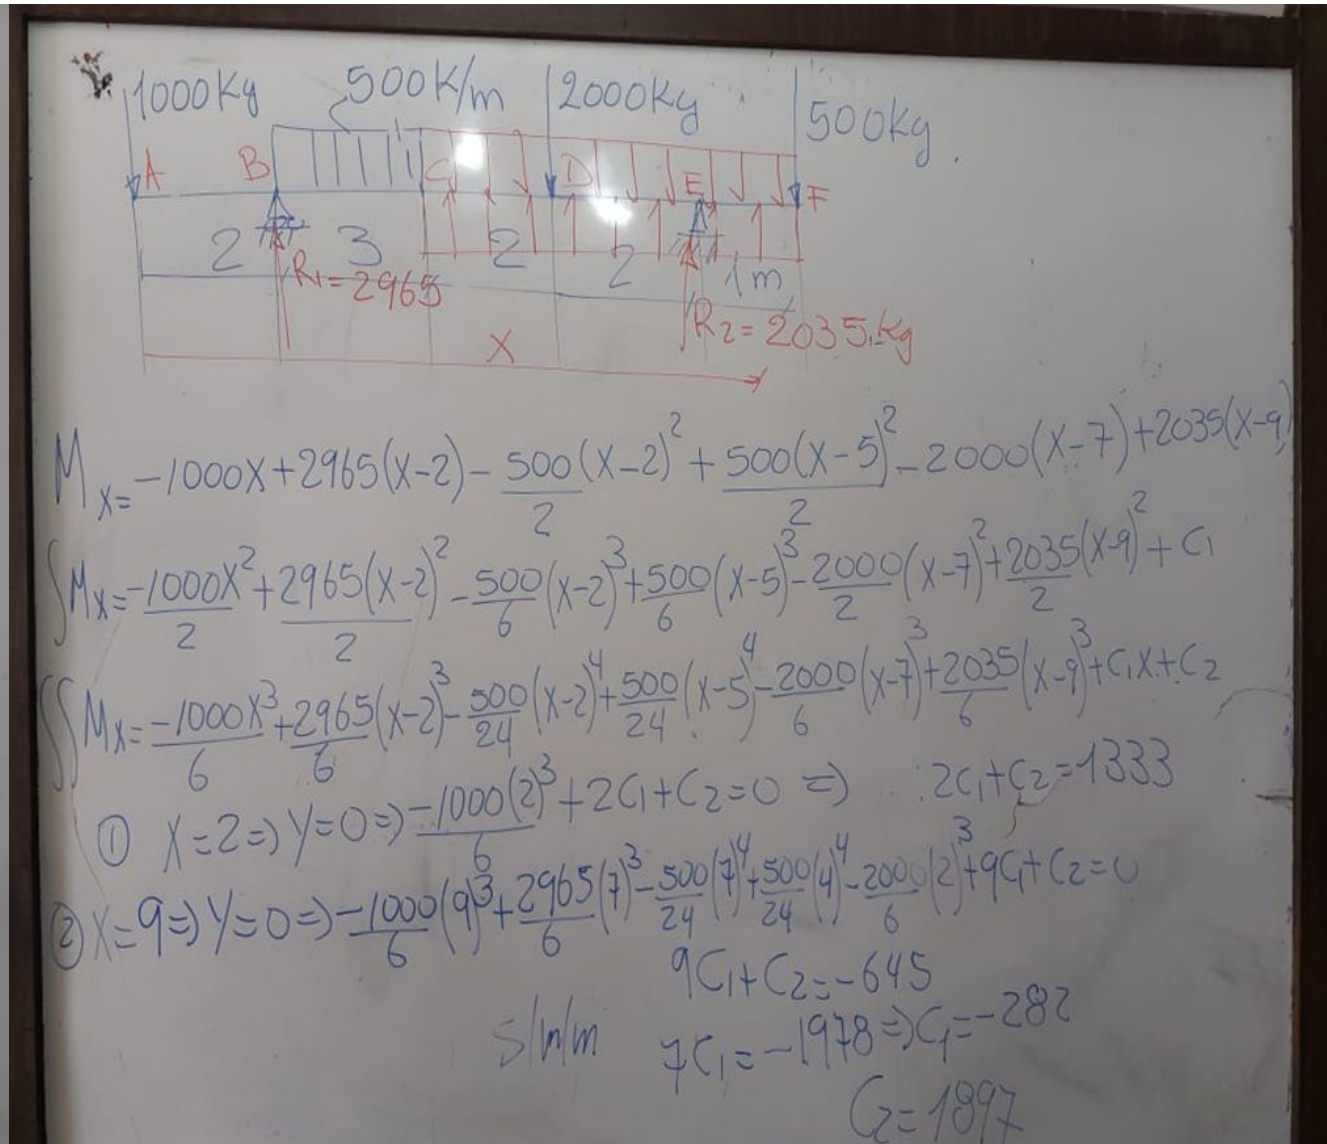 1000Kg 500K/m 2000Kg 500Kg.
A B C D E F
2 3 2 2 1m
R₁=2965
R₂=2035.Kg
X
Mx=-1000X+2965(X-2)-500/2(X-2)²+500(X-5)²/2-2000(X-7)+2035(X-9)
∫Mx=-1000X²/2+2965(X-2)²/2-500/6(X-2)³+500/6(X-5)³-2000/2(X-7)²+2035/2(X-9)²+C₁
∫∫Mx=-1000X³/6+2965/6(X-2)³-500/24(X-2)⁴+500/24(X-5)⁴-2000/6(X-7)³+2035/6(X-9)³+C₁X+C₂
① X=2⇒Y=0⇒-1000(2)³/6+2C₁+C₂=0 ⇒ 2C₁+C₂=1333
② X=9⇒Y=0⇒-1000/6(9)³+2965/6(7)³-500/24(7)⁴+500/24(4)⁴-2000/6(2)³+9C₁+C₂=0
9C₁+C₂=-645
S/m/m 7C₁=-1978⇒C₁=-282
C₂=1897